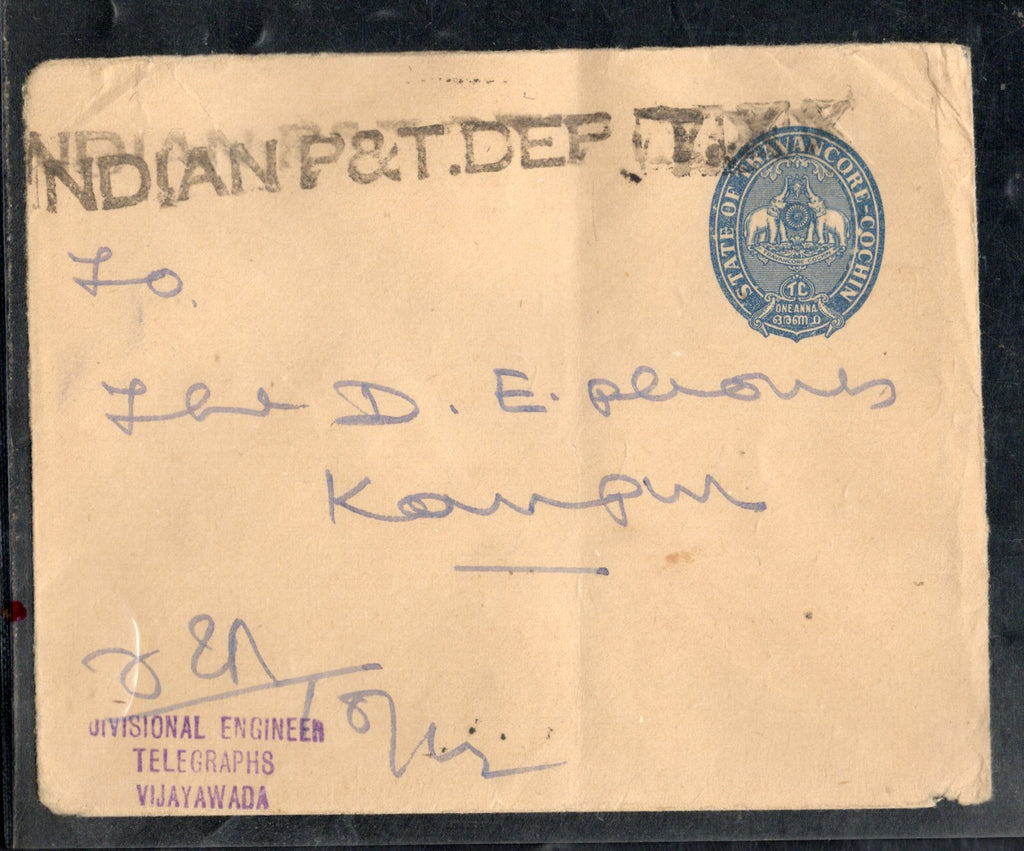 NDIAN P&T.DEP T.
STATE OF TRAVANCORE-COCHIN
TRAVANCORE COCHIN
TC
ONE ANNA
ഒരണ
To.
The D. E. phones
Kanpur
DIVISIONAL ENGINEER
TELEGRAPHS
VIJAYAWADA